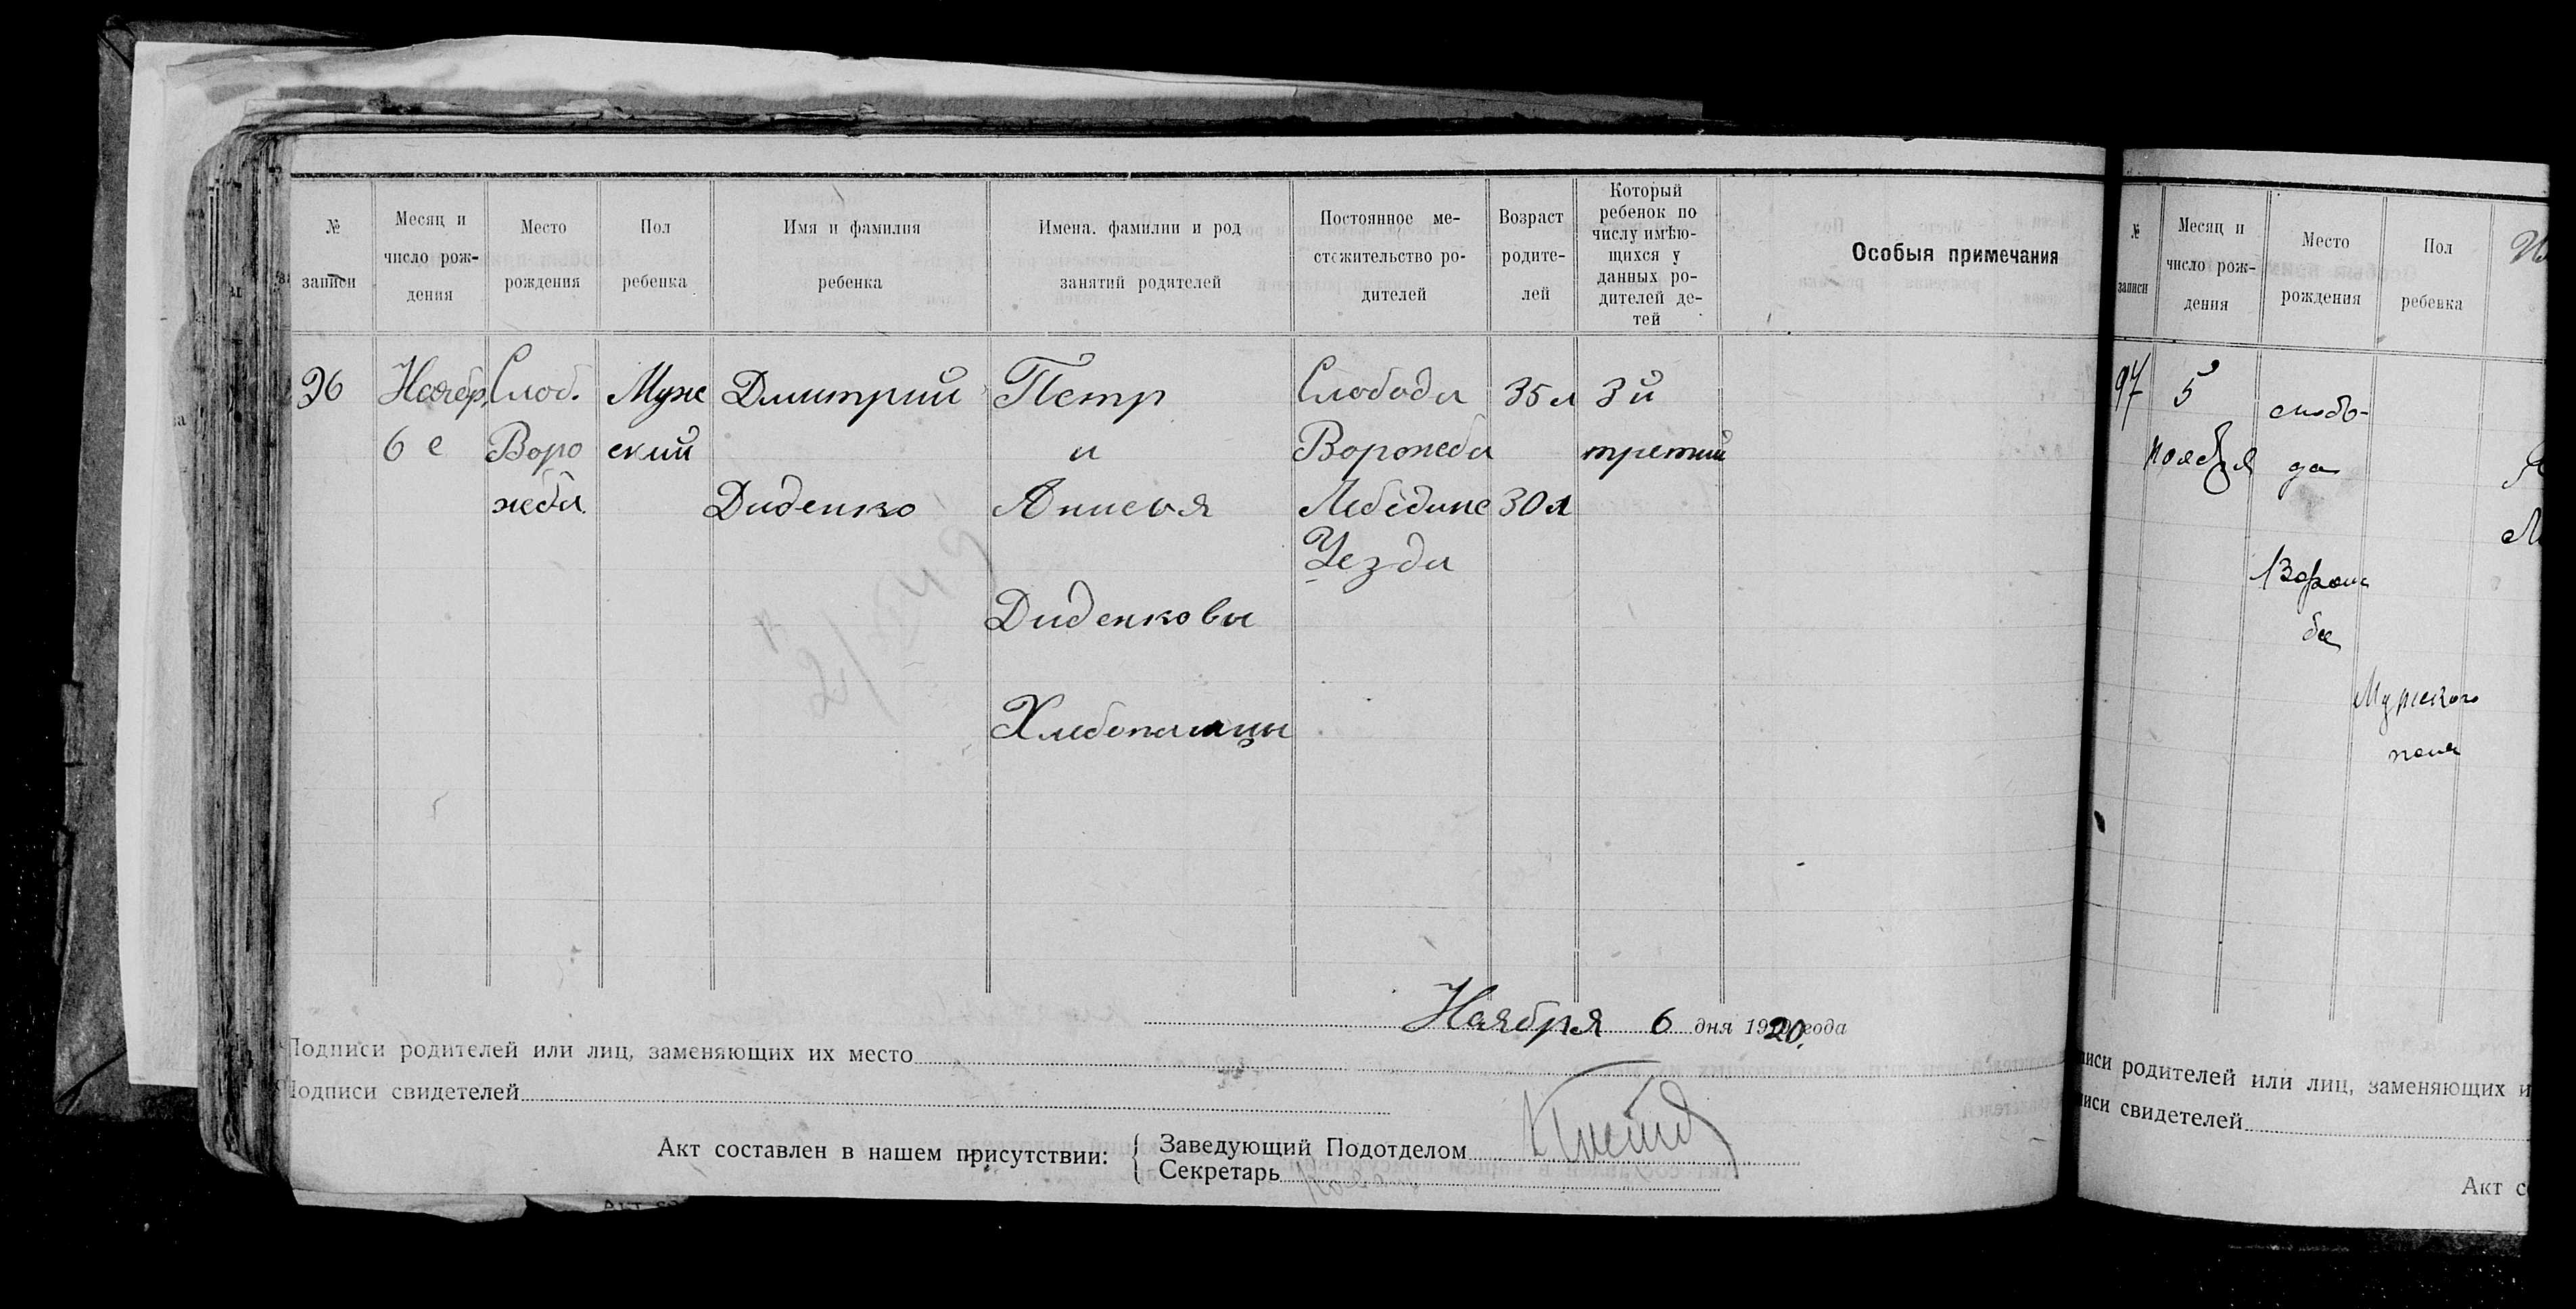 № записи
Месяц и число рож- дения
Место рождения
Пол ребенка
Имя и фамилия ребенка
Имена. фамилии и род занятий родителей
Постоянное ме- стожительство ро- дителей
Возраст родите- лей
Который ребенок по числу имѣю- щихся у данных ро- дителей де- тей
Особыя примечания
96
Ноябр.
6 е
Слоб.
Воро
жеба
Муж
ский
Дмитрий
Диденко
Петр
и
Анисья
Диденковы
Хлебопашцы
Слобода
Ворожеба
Лебедине
Уезда
35 л
30 л
3 й
третий
Ноября 6 дня 1920 года
Подписи родителей или лиц, заменяющих их место
Подписи свидетелей
Акт составлен в нашем присутствии:
Заведующий Подотделом
Секретарь
№ записи
Месяц и число рож- дения
Место рождения
Пол ребенка
97
5
ноября
слобо-
да
Ворож
ба
Мужского
пола
писи родителей или лиц, заменяющих и
писи свидетелей
Акт с